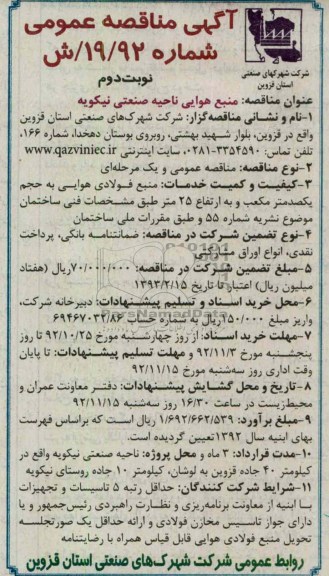 آگهی مناقصه عمومی
شماره ۱۹/۹۲/ش
نوبت دوم
شرکت شهرکهای صنعتی
استان قزوین
عنوان مناقصه: منبع هوایی ناحیه صنعتی نیکویه
۱-نام و نشانی مناقصه‌گزار: شرکت شهرک‌های صنعتی استان قزوین
واقع در قزوین، بلوار شهید بهشتی، روبروی بوستان دهخدا، شماره ۱۶۶،
تلفن تماس: ۳۳۵۴۵۹۰-۰۲۸۱، سایت اینترنتی www.qazviniec.ir
۲-نوع مناقصه: مناقصه عمومی و یک مرحله‌ای
۳-کیفیت و کمیت خدمات: منبع فولادی هوایی به حجم
یکصدمتر مکعب و به ارتفاع ۲۵ متر طبق مشخصات فنی ساختمان
موضوع نشریه شماره ۵۵ و طبق مقررات ملی ساختمان
۴-نوع تضمین شرکت در مناقصه: ضمانتنامه بانکی، پرداخت
نقدی، انواع اوراق مشارکت
۵-مبلغ تضمین شرکت در مناقصه: ۷۰/۰۰۰/۰۰۰ریال (هفتاد
میلیون ریال) اعتبار تا تاریخ ۱۳۹۳/۲/۱۵
۶-محل خرید اسناد و تسلیم پیشنهادات: دبیرخانه شرکت،
واریز مبلغ ۱۵۰/۰۰۰ریال به شماره حساب ۶۹۴۶۷۰۳۴/۸۶
۷-مهلت خرید اسناد: از روز چهارشنبه مورخ ۹۲/۱۰/۲۵ تا روز
پنجشنبه مورخ ۹۲/۱۱/۳ و مهلت تسلیم پیشنهادات: تا پایان
وقت اداری روز سه‌شنبه مورخ ۹۲/۱۱/۱۵
۸-تاریخ و محل گشایش پیشنهادات: دفتر معاونت عمران و
محیط‌زیست در ساعت ۱۶/۳۰ روز سه‌شنبه ۹۲/۱۱/۱۵
۹-مبلغ برآورد: ۱/۶۹۲/۶۶۲/۵۳۹ ریال است که براساس فهرست
بهای ابنیه سال ۱۳۹۲تعیین گردیده است.
۱۰-مدت قرارداد: ۳ ماه و محل پروژه: ناحیه صنعتی نیکویه واقع در
کیلومتر ۴۰ جاده قزوین به لوشان، کیلومتر ۱۰ جاده روستای نیکویه
۱۱-شرایط شرکت کنندگان: حداقل رتبه ۵ تاسیسات و تجهیزات
یا ابنیه از معاونت برنامه‌ریزی و نظارت راهبردی رئیس‌جمهور و یا
دارای جواز تاسیس مخازن فولادی و ارائه حداقل یک صورتجلسه
تحویل منبع فولادی هوایی قابل قیاس همراه با رضایتنامه
روابط عمومی شرکت شهرک‌های صنعتی استان قزوین